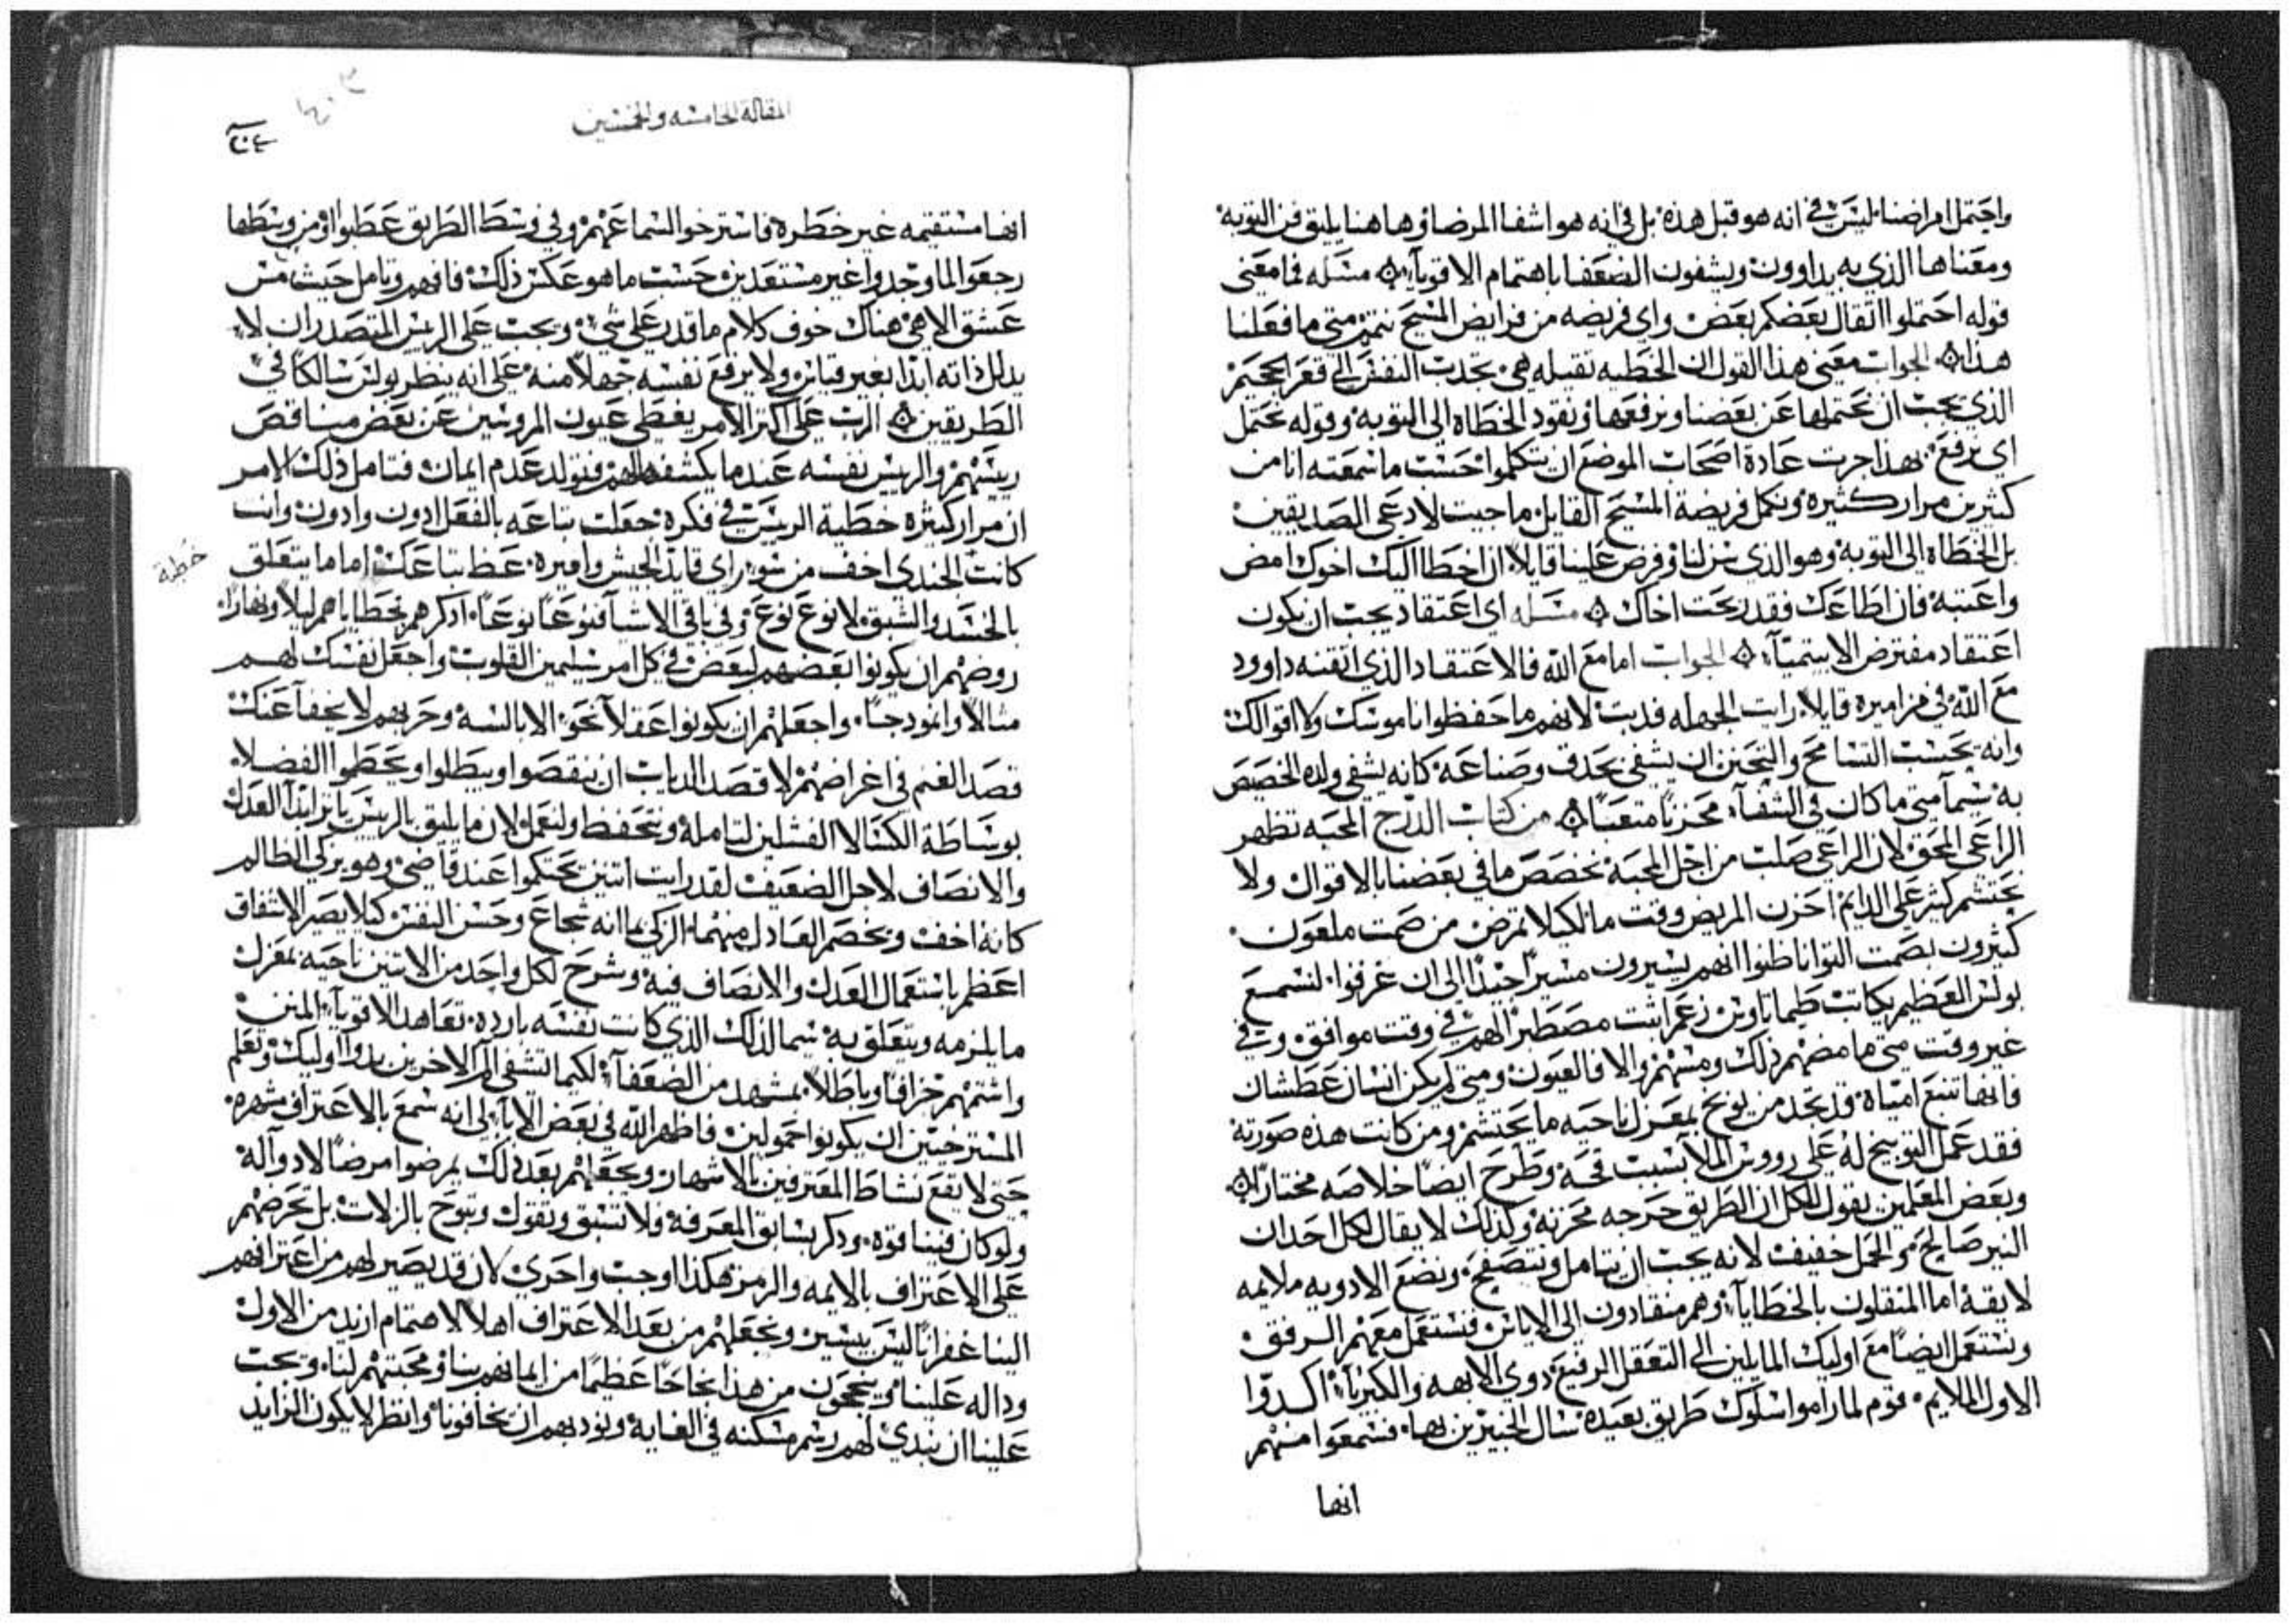 واحتمل امراضنا ليس في انه هو قبل هذه بل في انه هو اشفا المرضا وها هنا يليق فن التوبة
ومعناها الذي به يداوون ويشفون الضعفا باهتمام الاقويآ مسله فما معنى
قوله احتملوا اثقال بعضكم بعض واي فريضه من فرايض المسيح نتمم متى ما فعلنا
هذا الجواب معنى هذا القول ان الخطيه ثقيله هي تجدب النفس الى قعر الجحيم
الذي يجب ان نحتملها عن بعضنا ونرفعها ونقود الخطاه الى التوبه وقوله نحتمل
اي نرفع بهذا جرت عادة اصحاب الموضع ان يتكلموا حسب ما سمعته انا من
كثيرين مرار كثيره ونكمل فريضة المسيح القايل ما جيت لادعى الصديقين
بل الخطاه الى التوبه وهو الذي سن لنا وفرض علينا قايلا ان اخطا اليك اخوك امض
واعتبه فان اطاعك فقد ربحت اخاك مسله اي اعتقاد يجب ان يكون
اعتقاد مفترض الابيتميآ الجواب اما مع الله فالاعتقاد الذي اتقنه داوود
مع الله في مزاميره قايلا رايت الجهله فدبت لانهم ما حفظوا ناموسك ولا اقوالك
وانه بحسب التسامح والتحنن ان يشفى بحدق وصناعة كانه يشفي ولده الخصيص
به سيما متى ما كان في الشفآ محزنا متعبا من كتاب الدرج المحبه تظهر
الراعي المحق لان الراعي صلب من اجل المحبة نخصص ما في بعضنا بالاقوال ولا
نحتشم كثير على الدايم احزن المريض وقت ما لكيلا تمرض من صمت ملعون
كثيرون بصمت النواتا ظنوا انهم يسيرون مسيرا جيدا الى ان غرقوا لنسمع
بولس العظيم يكاتب طيماتاوس زعم اثبت مصطبرا لهم في وقت موافق وفي
غير وقت متى ما مضهم ذلك ومسهم والا فالعيون ومتى لم يكن انسان عطشان
فانها تنبع امياه قد نجد من يوبخ بمعزل ناحيه ما يحتشم ومن كانت هذه صورته
فقد عمل التوبيخ له على رووس الملآ بسبب قحة وطرح ايضا خلاصه مختارا
وبعض المعلمين يقول للكل ان الطريق حرجه محزنه وكذلك لا يقال لكل احد ان
النير صالح والحمل خفيف لانه يجب ان يتامل ونتصفح ونضع الادويه ملايمه
لايقة اما المثقلون بالخطايآ وهم منقادون الى الاياس فنستعمل معهم الرفق
ونستعمل ايضا مع اوليك المايلين الى التعقل الرفيع دوي الابهه والكبريآ
الاول الملايم قوم لما راموا سلوك طريق بعيده سال الخبيرين بها فسمعوا منهم
انها
المقاله الخامسه والخمسين
انها مستقيمه غير خطره فاسترخوا لسماعهم وفي وسط الطريق عطبوا او من وسطها
رجعوا لما وجدوا غير مستعدين حسب ما هو عكس ذلك فافهم وتامل حيث مس
عشق الاهي هناك خوف كلام ما قدر على شي ويجب على الريس المتصدر ان لا
يدلل ذاته ابدا بغير قياس ولا يرفع نفسه جهلا منه على انه ينظر بولس سالكا في
الطريقين الرب على اكثر الامر يغطي عيون المروسين عن بعض مناقص
ريسهم والريس نفسه عندما يكشفها لهم فتولد عدم ايمان فتامل ذلك الامر
ان مرار كثيره خطية الريس في فكره جعلت تباعه بالفعل ادون وادون وانت
كانت الجندي اخف من سو راي قايد الجيش واميره عظ تباعك اما ما يتعلق
خطية
بالحسد والشبق لا نوع نوع وفي باقي الاشيآ فنوعا نوعا ادكرهم بخطاياهم ليلا ونهارا
روضهم ان يكونوا بعضهم لبعض في كل امر سليمين القلوب واجعل نفسك لهم
مثالا وانمودجا واجعلهم ان يكونوا عقلآ نحو الابالسه وحربهم لا يخفآ عنك
قصد الغنم في اغراضهم لا قصد الدياب ان ينقصوا ويبطلوا ويحطموا الفضلا
بوساطة الكسالا الفشلين لتامله ونتحفظ ولنعمل لان ما يليق بالريس يابر ابدآ العدل
والانصاف لاجل الضعيف لقد رايت اتنين تحتكموا عند قاضي وهو يزكي الظالم
كانه اخف ويخصم العادل منهما الزكي بما انه شجاع وحسن النفس كيلا يصير الانتفاق
اعظم باستعمال العدل والانصاف فيه وشرح لكل واحد من الاتنين ناحيه بمعزل
ما يلزمه ويتعلق به سيما لذلك الذي كانت نفسه بارده تعاهد الاقويآ
واشتمهم خرافا وباطلا بمشهد من الضعفآ لكيما تشفي الم الاخرين بدوآ اوليك وتعلم
المسترخيين ان يكونوا حمولين فاظهر الله في بعض الابآ الى انه سمع بالاعتراف مشهره
حتى لا يقع نشاط المعترفين بالاشهار ويجعلهم بعد ذلك يمرضوا مرضا لا دوآ له
ولو كان فينا قوه ودكر بسابق المعرفة فلا نسبق ونقول ونبوح بالزلات بل نحرضهم
على الاعتراف بالايمه والرمز هكذا اوجب واحرى لان قد يصير لهم من اعترافهم
الينا غفرانا ليس بيسير ونجعلهم من بعد الاعتراف اهلا لاهتمام ازيد من الاول
وداله علينا وينجحون من هذا نجاحا عظيما من ايمانهم بنا ومحبتهم لنا ويجب
علينا ان نبدي لهم رسم مسكنه في الغايه ونودبهم ان يخافونا وانظر لا يكون الزايد